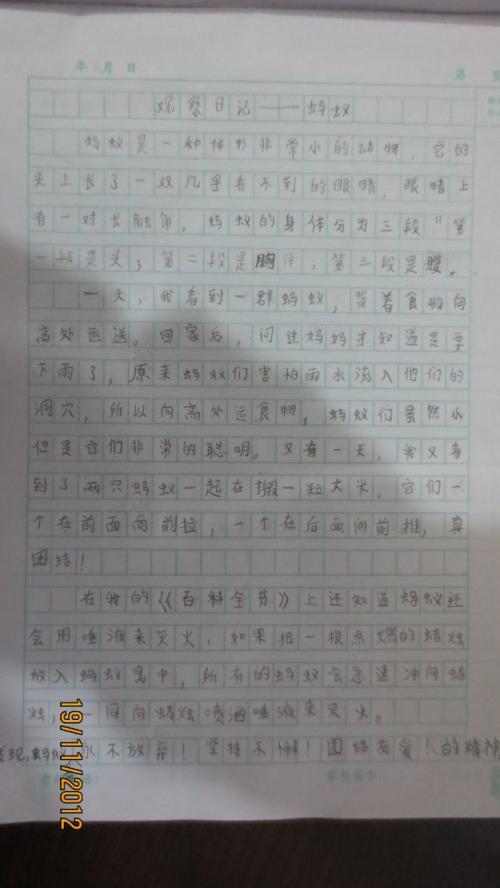 年 月 日 第
观察日记——蚂蚁
蚂蚁是一种体形非常小的动物，它的
头上长了一双几乎看不到的眼睛，眼睛上
有一对长触角。蚂蚁的身体分为三段“第
一段是头；第二段是胸；第三段是腹。
一天，我看到一群蚂蚁，背着食物向
高处运送。回家后，问过妈妈才知道是要
下雨了，原来蚂蚁们害怕雨水流入他们的
洞穴，所以向高处运食物，蚂蚁们虽然小
但是它们非常的聪明。又有一天，我又看
到了两只蚂蚁一起在搬一粒大米，它们一
个在前面向前拉，一个在后面向前推，真
团结！
在我的《百科全书》上还知道蚂蚁还
会用唾液来灭火，如果把一根点燃的蜡烛
放入蚂蚁窝中，所有的蚂蚁会急速冲向蜡
烛，一同向蜡烛喷洒唾液来灭火。
发现，蚂蚁永不放弃！坚持不懈！团结友爱！的精神
家长签字：
19/11/2012